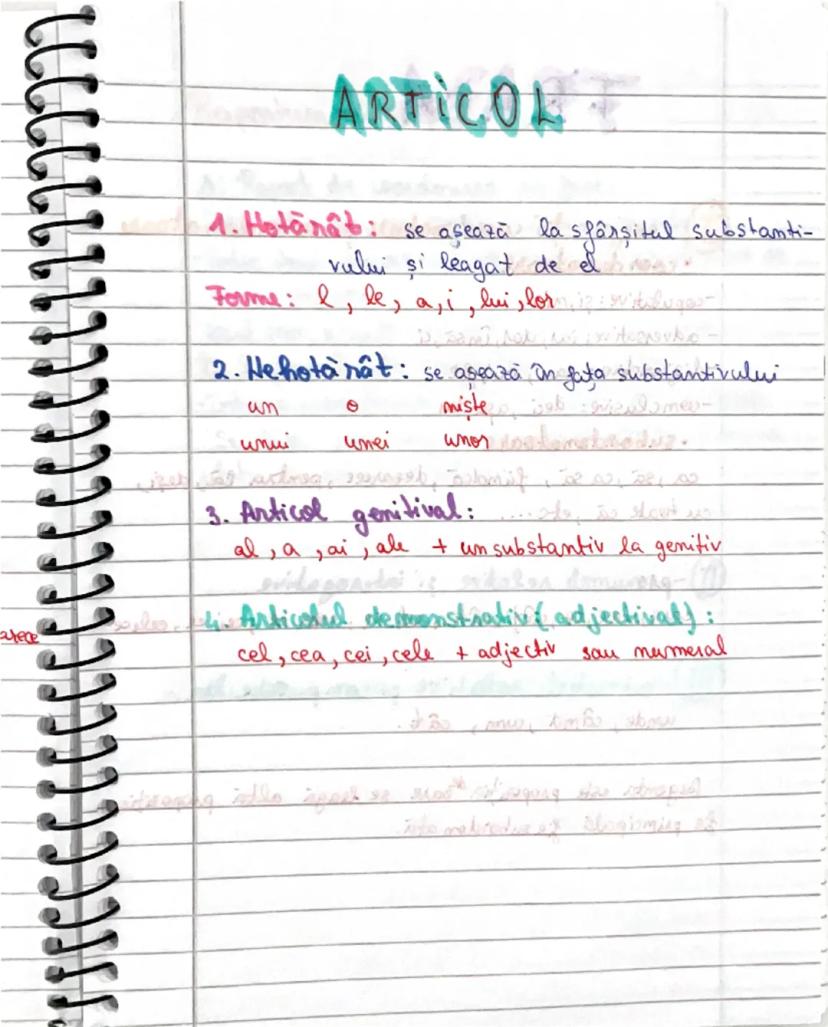 ARTICOL
1. Hotărât: se așează la sfârșitul substanti-
vului și leagat de el
Forme: l, le, a, i, lui, lor
2. Nehotărât: se așează în fața substantivului
un o niște
unui unei unor
3. Articol genitival:
al, a, ai, ale + un substantiv la genitiv
4. Articolul demonstrativ (adjectival):
cel, cea, cei, cele + adjectiv sau numeral